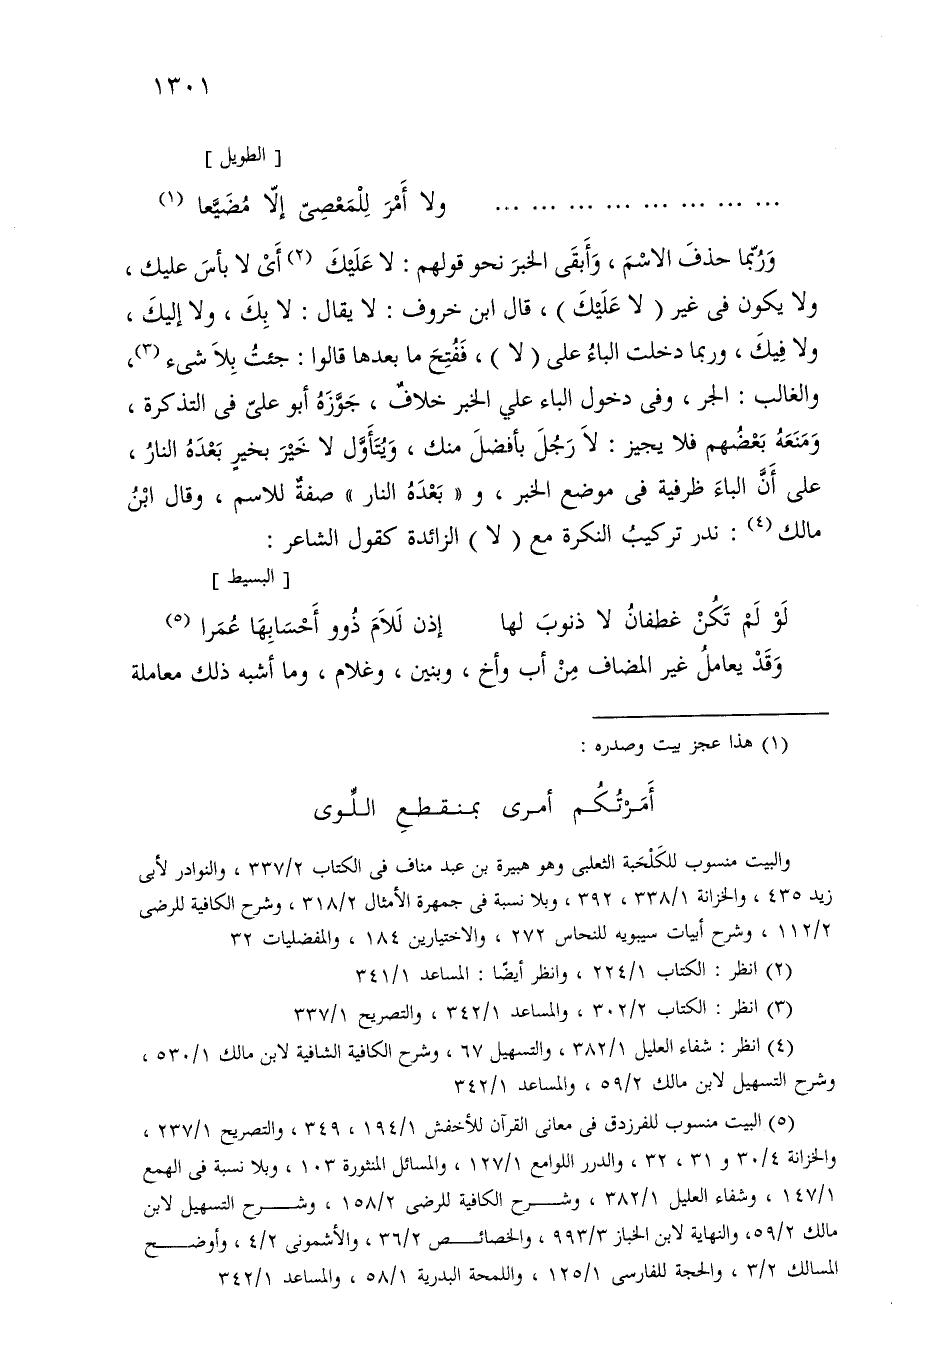 ١٣٠١
[ الطويل ]
... ... ... ... ... ... ... ... ولا أَمْرَ لِلْمَعْصِىّ إلّا مُضَيَّعا (١)
وَرُبّما حذفَ الاسْمَ ، وَأَبقَى الخبرَ نحو قولهم : لا عَلَيْكَ (٢) أَىْ لا بأسَ عليك ،
ولا يكون فى غير ( لا عَلَيْكَ ) ، قال ابن خروف : لا يقال : لا بِكَ ، ولا إليكَ ،
ولا فِيكَ ، وربما دخلت الباءُ على ( لا ) ، فَفُتِحَ ما بعدها قالوا : جئتُ بِلاَ شىء (٣)،
والغالب : الجر ، وفى دخول الباء علي الخبر خلافٌ ، جَوَّزَهُ أبو علىّ فى التذكرة ،
وَمَنَعَهُ بَعْضُهم فلا يجيز : لاَ رَجُلَ بأفضلَ منك ، وَيُتَأَوَّل لا خَيْرَ بخيرٍ بَعْدَهُ النارُ ،
على أَنَّ الباءَ ظرفية فى موضع الخبر ، و « بَعْدَهُ النار » صفةٌ للاسم ، وقال ابْنُ
مالك (٤) : ندر تركيبُ النكرة مع ( لا ) الزائدة كقول الشاعر :
[ البسيط ]
لَوْ لَمْ تَكُنْ غطفانُ لا ذنوبَ لها إذن لَلاَمَ ذُوو أَحْسَابِهَا عُمَرا (٥)
وَقَدْ يعاملُ غير المضاف مِنْ أب وأخ ، وبنين ، وغلام ، وما أشبه ذلك معاملة
(١) هذا عجز بيت وصدره :
أَمَرْتُكُم أمرى بمنقطعِ اللِّوى
والبيت منسوب للكَلْحَبة الثعلبى وهو هبيرة بن عبد مناف فى الكتاب ٣٣٧/٢ ، والنوادر لأبى
زيد ٤٣٥ ، والخزانة ٣٣٨/١ ، ٣٩٢ ، وبلا نسبة فى جمهرة الأمثال ٣١٨/٢ ، وشرح الكافية للرضى
١١٢/٢ ، وشرح أبيات سيبويه للنحاس ٢٧٢ ، والاختيارين ١٨٤ ، والمفضليات ٣٢
(٢) انظر : الكتاب ٢٢٤/١ ، وانظر أيضًا : المساعد ٣٤١/١
(٣) انظر : الكتاب ٣٠٢/٢ ، والمساعد ٣٤٢/١ ، والتصريح ٣٣٧/١
(٤) انظر : شفاء العليل ٣٨٢/١ ، والتسهيل ٦٧ ، وشرح الكافية الشافية لابن مالك ٥٣٠/١ ،
وشرح التسهيل لابن مالك ٥٩/٢ ، والمساعد ٣٤٢/١
(٥) البيت منسوب للفرزدق فى معانى القرآن للأخفش ١٩٤/١ ، ٣٤٩ ، والتصريح ٢٣٧/١ ،
والخزانة ٣٠/٤ و ٣١ ، ٣٢ ، والدرر اللوامع ١٢٧/١ ، والمسائل المنثورة ١٠٣ ، وبلا نسبة فى الهمع
١٤٧/١ ، وشفاء العليل ٣٨٢/١ ، وشرح الكافية للرضى ١٥٨/٢ ، وشرح التسهيل لابن
مالك ٥٩/٢، والنهاية لابن الخباز ٩٩٣/٣ ، والخصائص ٣٦/٢ ، والأشمونى ٤/٢ ، وأوضح
المسالك ٣/٢ ، والحجة للفارسى ١٢٥/١ ، واللمحة البدرية ٥٨/١ ، والمساعد ٣٤٢/١